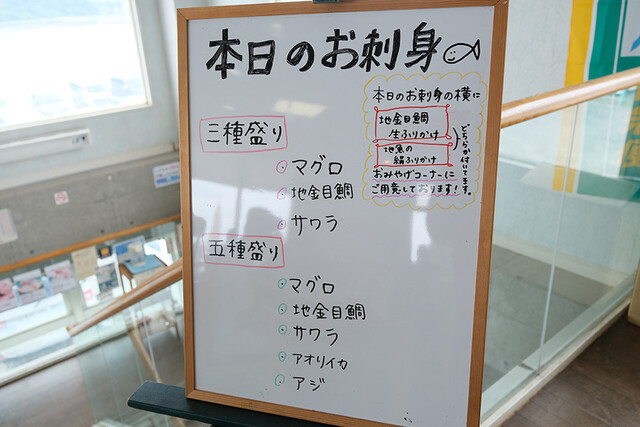 本日のお刺身
三種盛り
マグロ
地金目鯛
サワラ
五種盛り
マグロ
地金目鯛
サワラ
アオリイカ
アジ
本日のお刺身の横に
地金目鯛
生ふりかけ
地魚の
絹ふりかけ
どちらか付いてます。
おみやげコーナーに
ご用意しております!